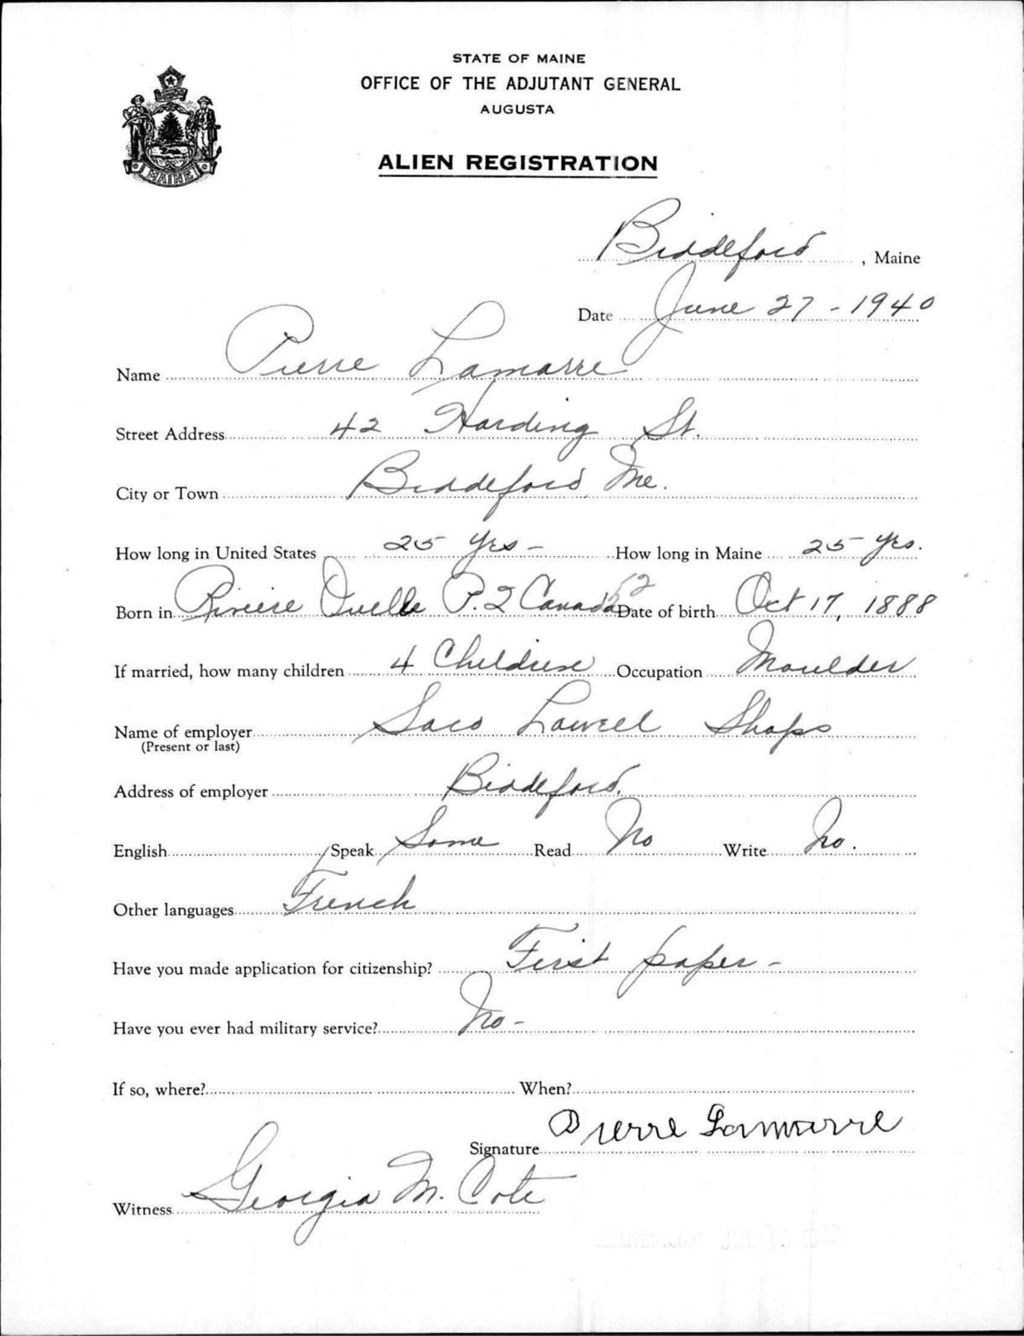 STATE OF MAINE
OFFICE OF THE ADJUTANT GENERAL
AUGUSTA
ALIEN REGISTRATION
MAINE
Biddeford, Maine
Date June 27-1940
Name Pierre Lamarre
Street Address 42 Harding St.
City or Town Biddeford Me.
How long in United States 25 yrs - How long in Maine 25 yrs.
Born in Riviere Ouelle P.Q Canada 52 Date of birth Oct 17, 1888
If married, how many children 4 Children Occupation Moulder
Name of employer Saco Lowell Shops
(Present or last)
Address of employer Biddeford.
English Speak Some Read No Write No.
Other languages French
Have you made application for citizenship? First paper -
Have you ever had military service? No -
If so, where? When?
Signature Pierre Lamarre
Witness Georgia M. Cote